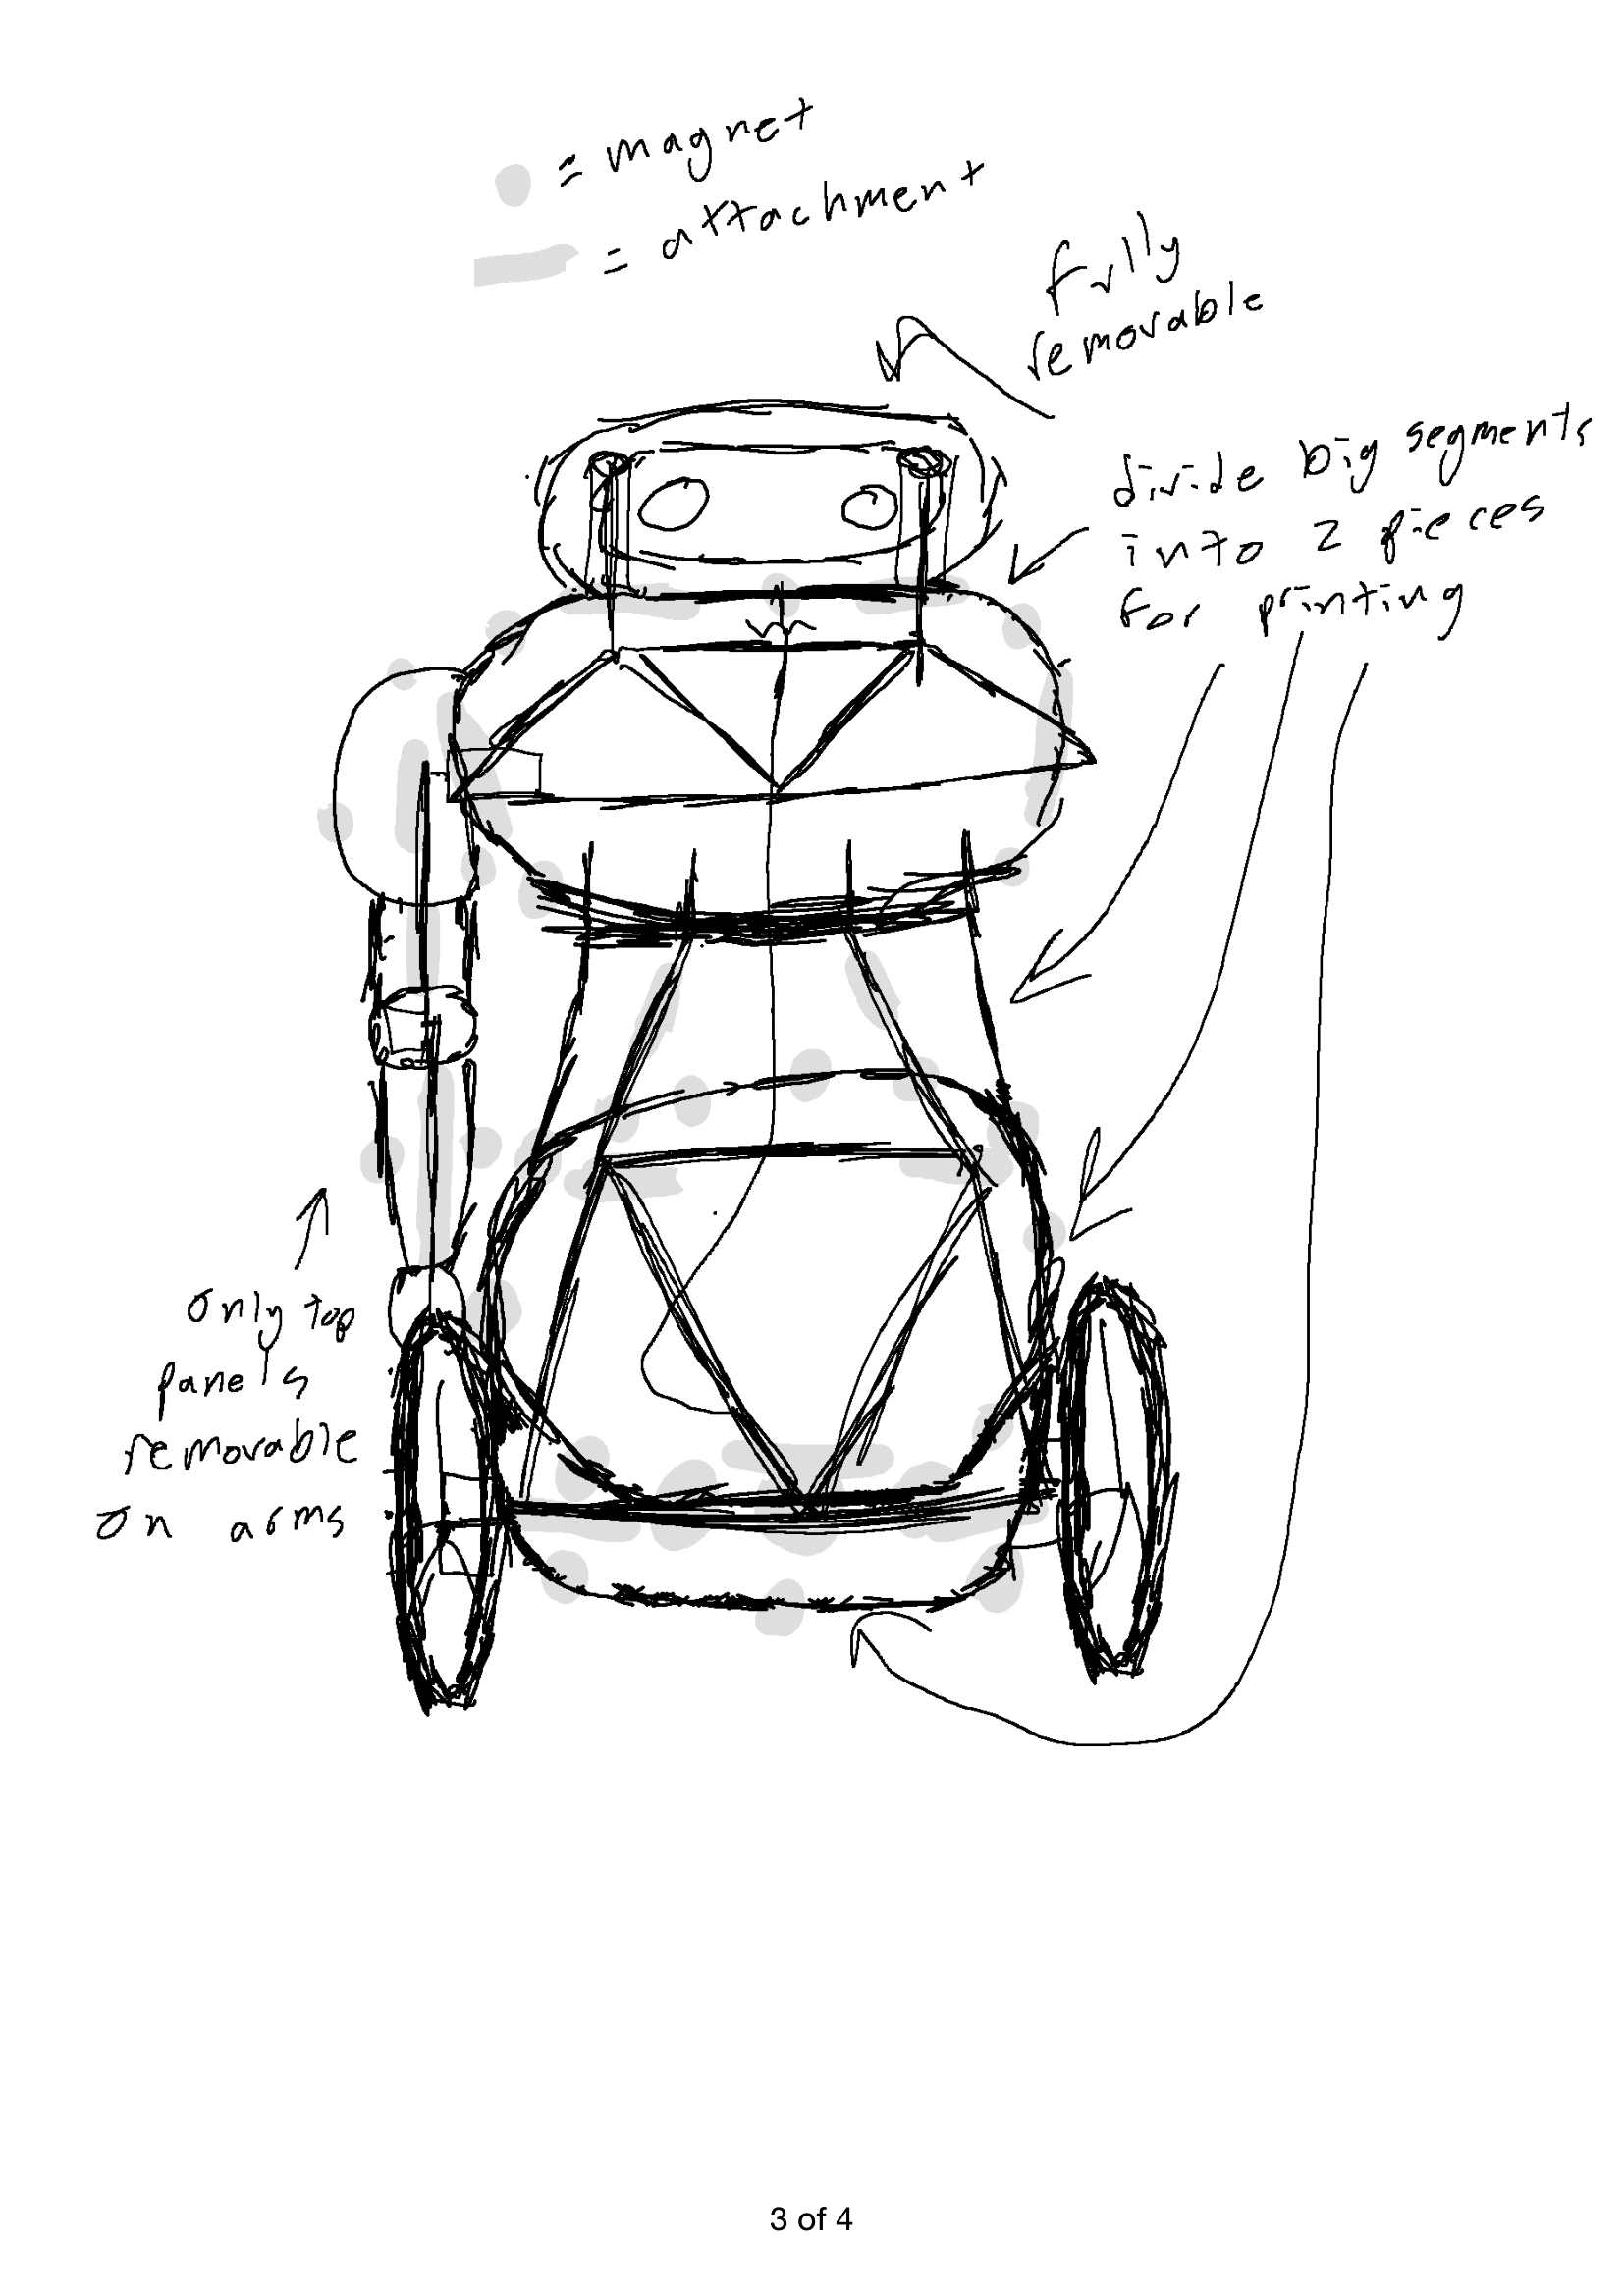 = magnet
= attachment
fully
removable
divide big segments
into 2 pieces
for printing
only top
panels
removable
on arms
3 of 4